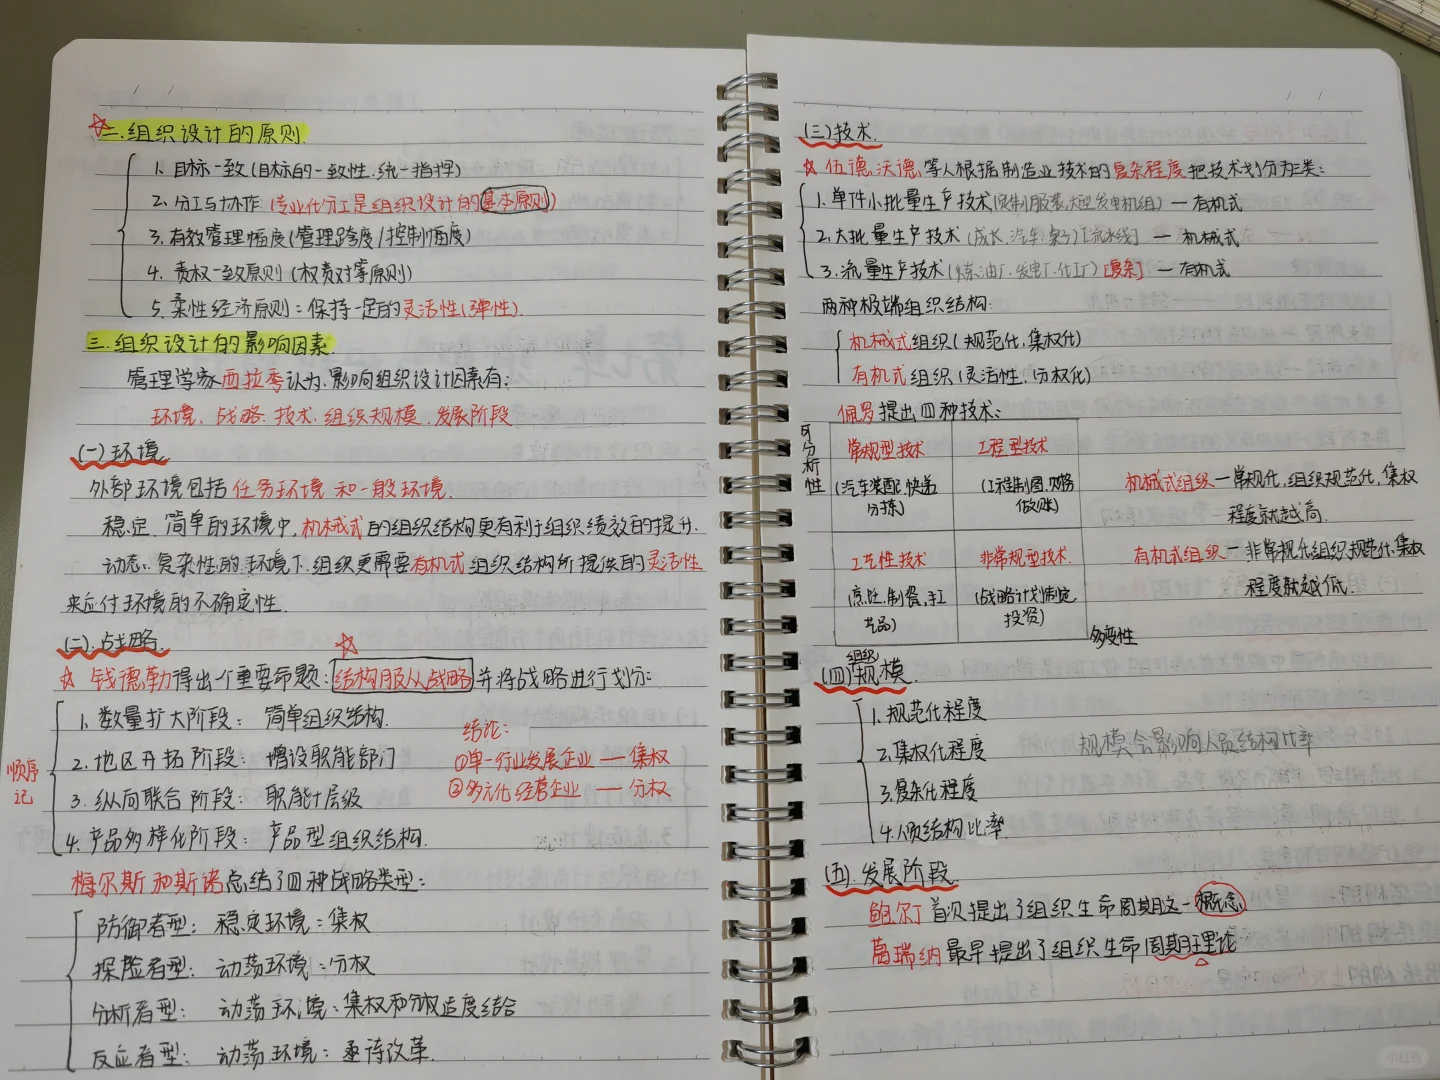 二.组织设计的原则
1.目标一致(目标的一致性.统一指挥)
2.分工与协作(专业化分工是组织设计的基本原则)
3.有效管理幅度(管理跨度/控制幅度)
4.责权一致原则(权责对等原则)
5.柔性经济原则:保持一定的灵活性(弹性).
三.组织设计的影响因素.
管理学家西拉季认为.影响组织设计因素有:
环境、战略.技术.组织规模.发展阶段
(一)环境
外部环境包括任务环境和一般环境.
稳定、简单的环境中,机械式的组织结构更有利于组织绩效的提升.
动态、复杂性的环境下.组织更需要有机式组织结构所提供的灵活性
来应付环境的不确定性.
(二).战略.
钱德勒得出个重要命题:结构服从战略并将战略进行划分:
顺序记
1.数量扩大阶段: 简单组织结构.
2.地区开拓阶段: 增设职能部门
3.纵向联合阶段: 职能+层级
4.产品多样化阶段: 产品型组织结构.
结论:
①单一行业发展企业 — 集权
②多元化经营企业 — 分权
梅尔斯和斯诺总结了四种战略类型:
防御者型: 稳定环境:集权
探险者型: 动荡环境:分权
分析者型: 动荡环境:集权和分权适度结合
反应者型: 动荡环境:逐待改革.
(三)技术.
伍德.沃德.等人根据制造业技术的复杂程度把技术划分为三类:
1.单件小批量生产技术(定制服装,大型发电机组) — 有机式
2.大批量生产技术(成长.汽车.架子)[流水线] — 机械式
3.流量生产技术(炼油厂.发电厂.化工厂)[复杂] — 有机式
两种极端组织结构:
机械式组织(规范化,集权化)
有机式组织(灵活性.分权化)
佩罗提出四种技术:
可分析性
常规型技术 工程型技术
(汽车装配,快递分拣) (工程制图,财务做账)
工艺性技术 非常规型技术.
(烹饪.制餐,手工艺品) (战略计划制定,投资)
多变性
机械式组织—常规化,组织规范化,集权
程度就越高.
有机式组织—非常规化组织规范化.集权
程度就越低.
(四)组织规模
1.规范化程度
2.集权化程度
3.复杂化程度
4.人员结构比率
规模会影响人员结构比率
(五).发展阶段.
鲍尔丁首次提出了组织生命周期这一概念
葛瑞纳最早提出了组织生命周期理论
小红书